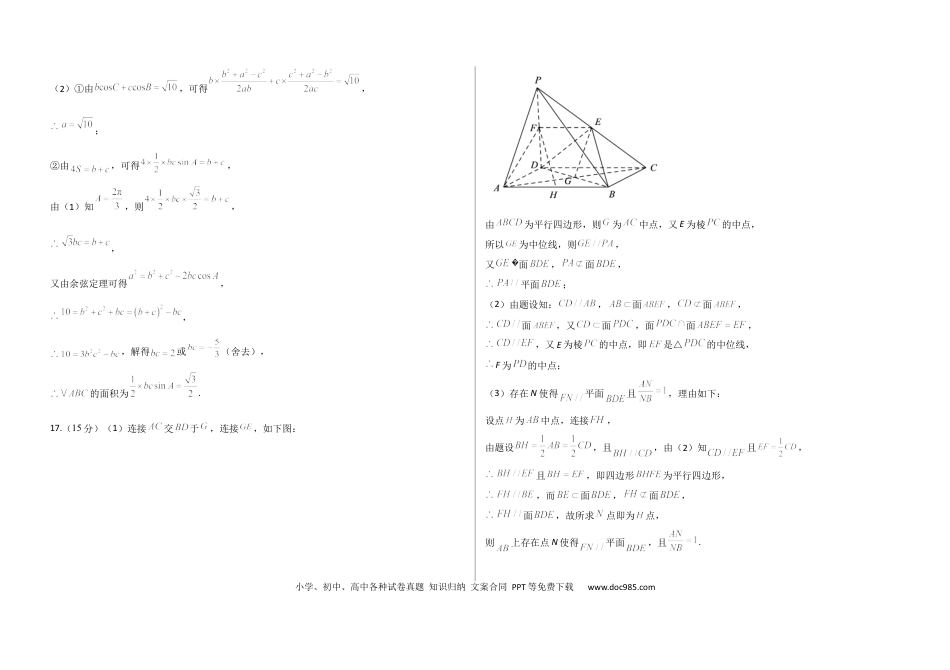 （2）①由bcosC+ccosB=√10，可得b×(b²+a²−c²)/2ab+c×(c²+a²−b²)/2ac=√10，
∴a=√10；
②由4S=b+c，可得4×1/2×bcsinA=b+c，
由（1）知A=2π/3，则4×1/2×bc×√3/2=b+c，
∴√3bc=b+c，
又由余弦定理可得a²=b²+c²−2bccosA，
∴10=b²+c²+bc=(b+c)²−bc，
∴10=3b²c²−bc，解得bc=2或bc=−5/3（舍去），
∴∀ABC的面积为1/2×bcsinA=√3/2.
17.（15 分）（1）连接AC交BD于G，连接GE，如下图：
P
F
E
D
C
A
G
H
B
由ABCD为平行四边形，则G为AC中点，又E为棱PC的中点，
所以GE为中位线，则GE//PA，
又GE�面BDE，PA⊄面BDE，
∴PA//平面BDE；
（2）由题设知：CD//AB，AB⊂面ABEF，CD⊄面ABEF，
∴CD//面ABEF，又CD⊂面PDC，面PDC∩面ABEF=EF，
∴CD//EF，又E为棱PC的中点，即EF是△PDC的中位线，
∴F为PD的中点；
（3）存在N使得FN//平面BDE且AN/NB=1，理由如下：
设点H为AB中点，连接FH，
由题设BH=1/2AB=1/2CD，且BH//CD，由（2）知CD//EF且EF=1/2CD，
∴BH//EF且BH=EF，即四边形BHFE为平行四边形，
∴FH//BE，而BE⊂面BDE，FH⊄面BDE，
∴FH//面BDE，故所求N点即为H点，
则AB上存在点N使得FN//平面BDE，且AN/NB=1.
小学、初中、高中各种试卷真题 知识归纳 文案合同 PPT 等免费下载 www.doc985.com